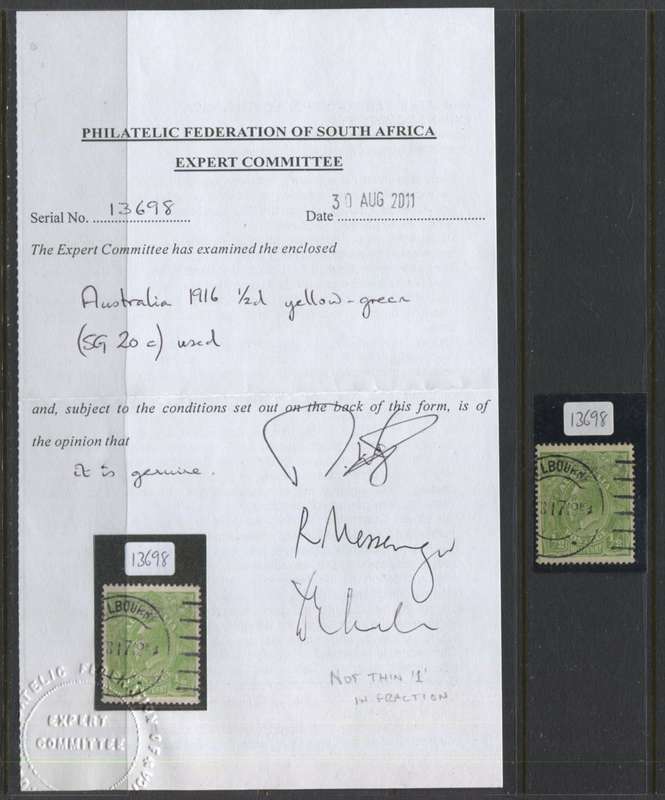 PHILATELIC FEDERATION OF SOUTH AFRICA
EXPERT COMMITTEE
Serial No. 13698
Date 30 AUG 2011
The Expert Committee has examined the enclosed
Australia 1916 ½d yellow-green
(SG 20 c) used
and, subject to the conditions set out on the back of this form, is of
the opinion that
it is genuine.
R Messenger
NOT THIN '1'
IN FRACTION
13698
LBOURNE
EXPERT
COMMITTEE
13698
LBOURNE